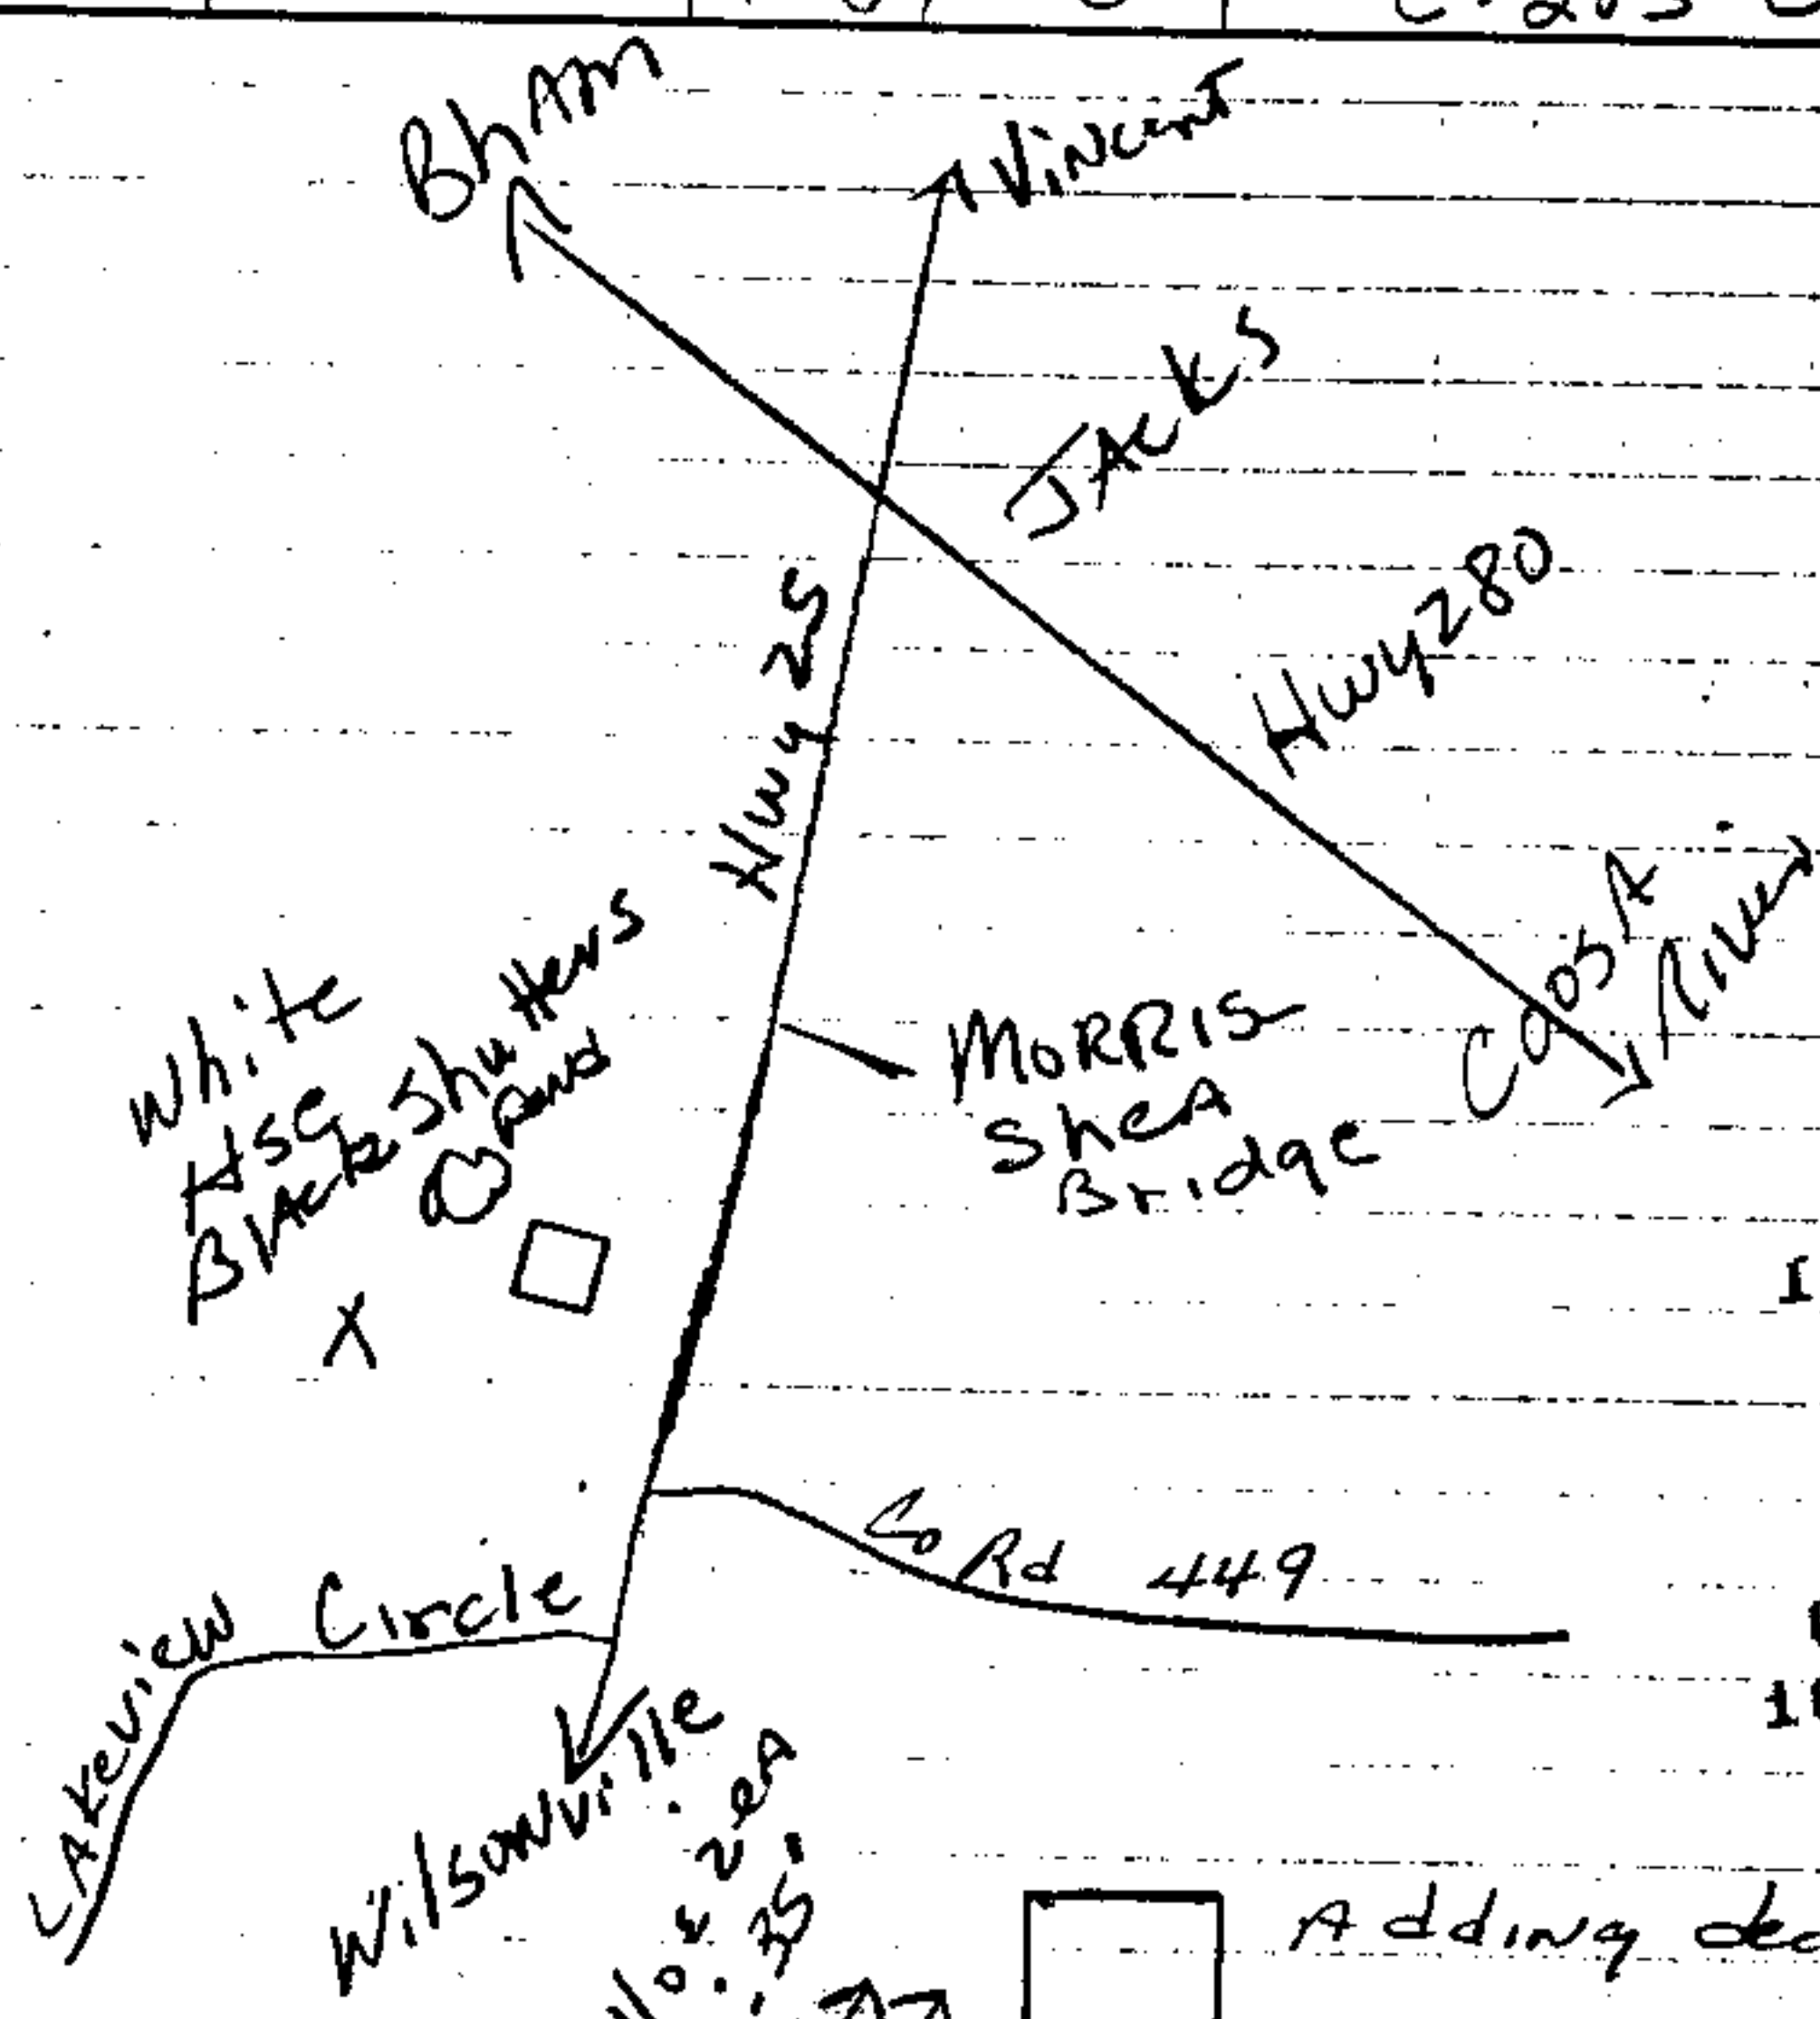 BhAm
Vincent
JAcks
Hwy 25
Hwy 280
Coosa
River
White
Hse
Black Shutters
Pond
X
Morris
Shea
Bridge
Co Rd 449
Lakeview Circle
Wilsonville
2 ea
35'
Adding